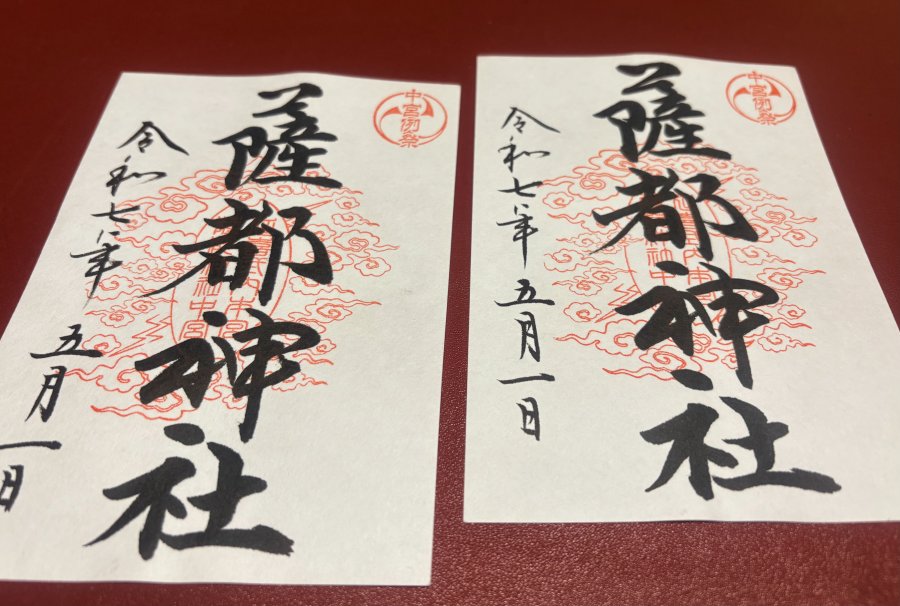 中宮例祭
薩都神社
令和七年五月一日
中宮例祭
薩都神社
令和七年五月一日